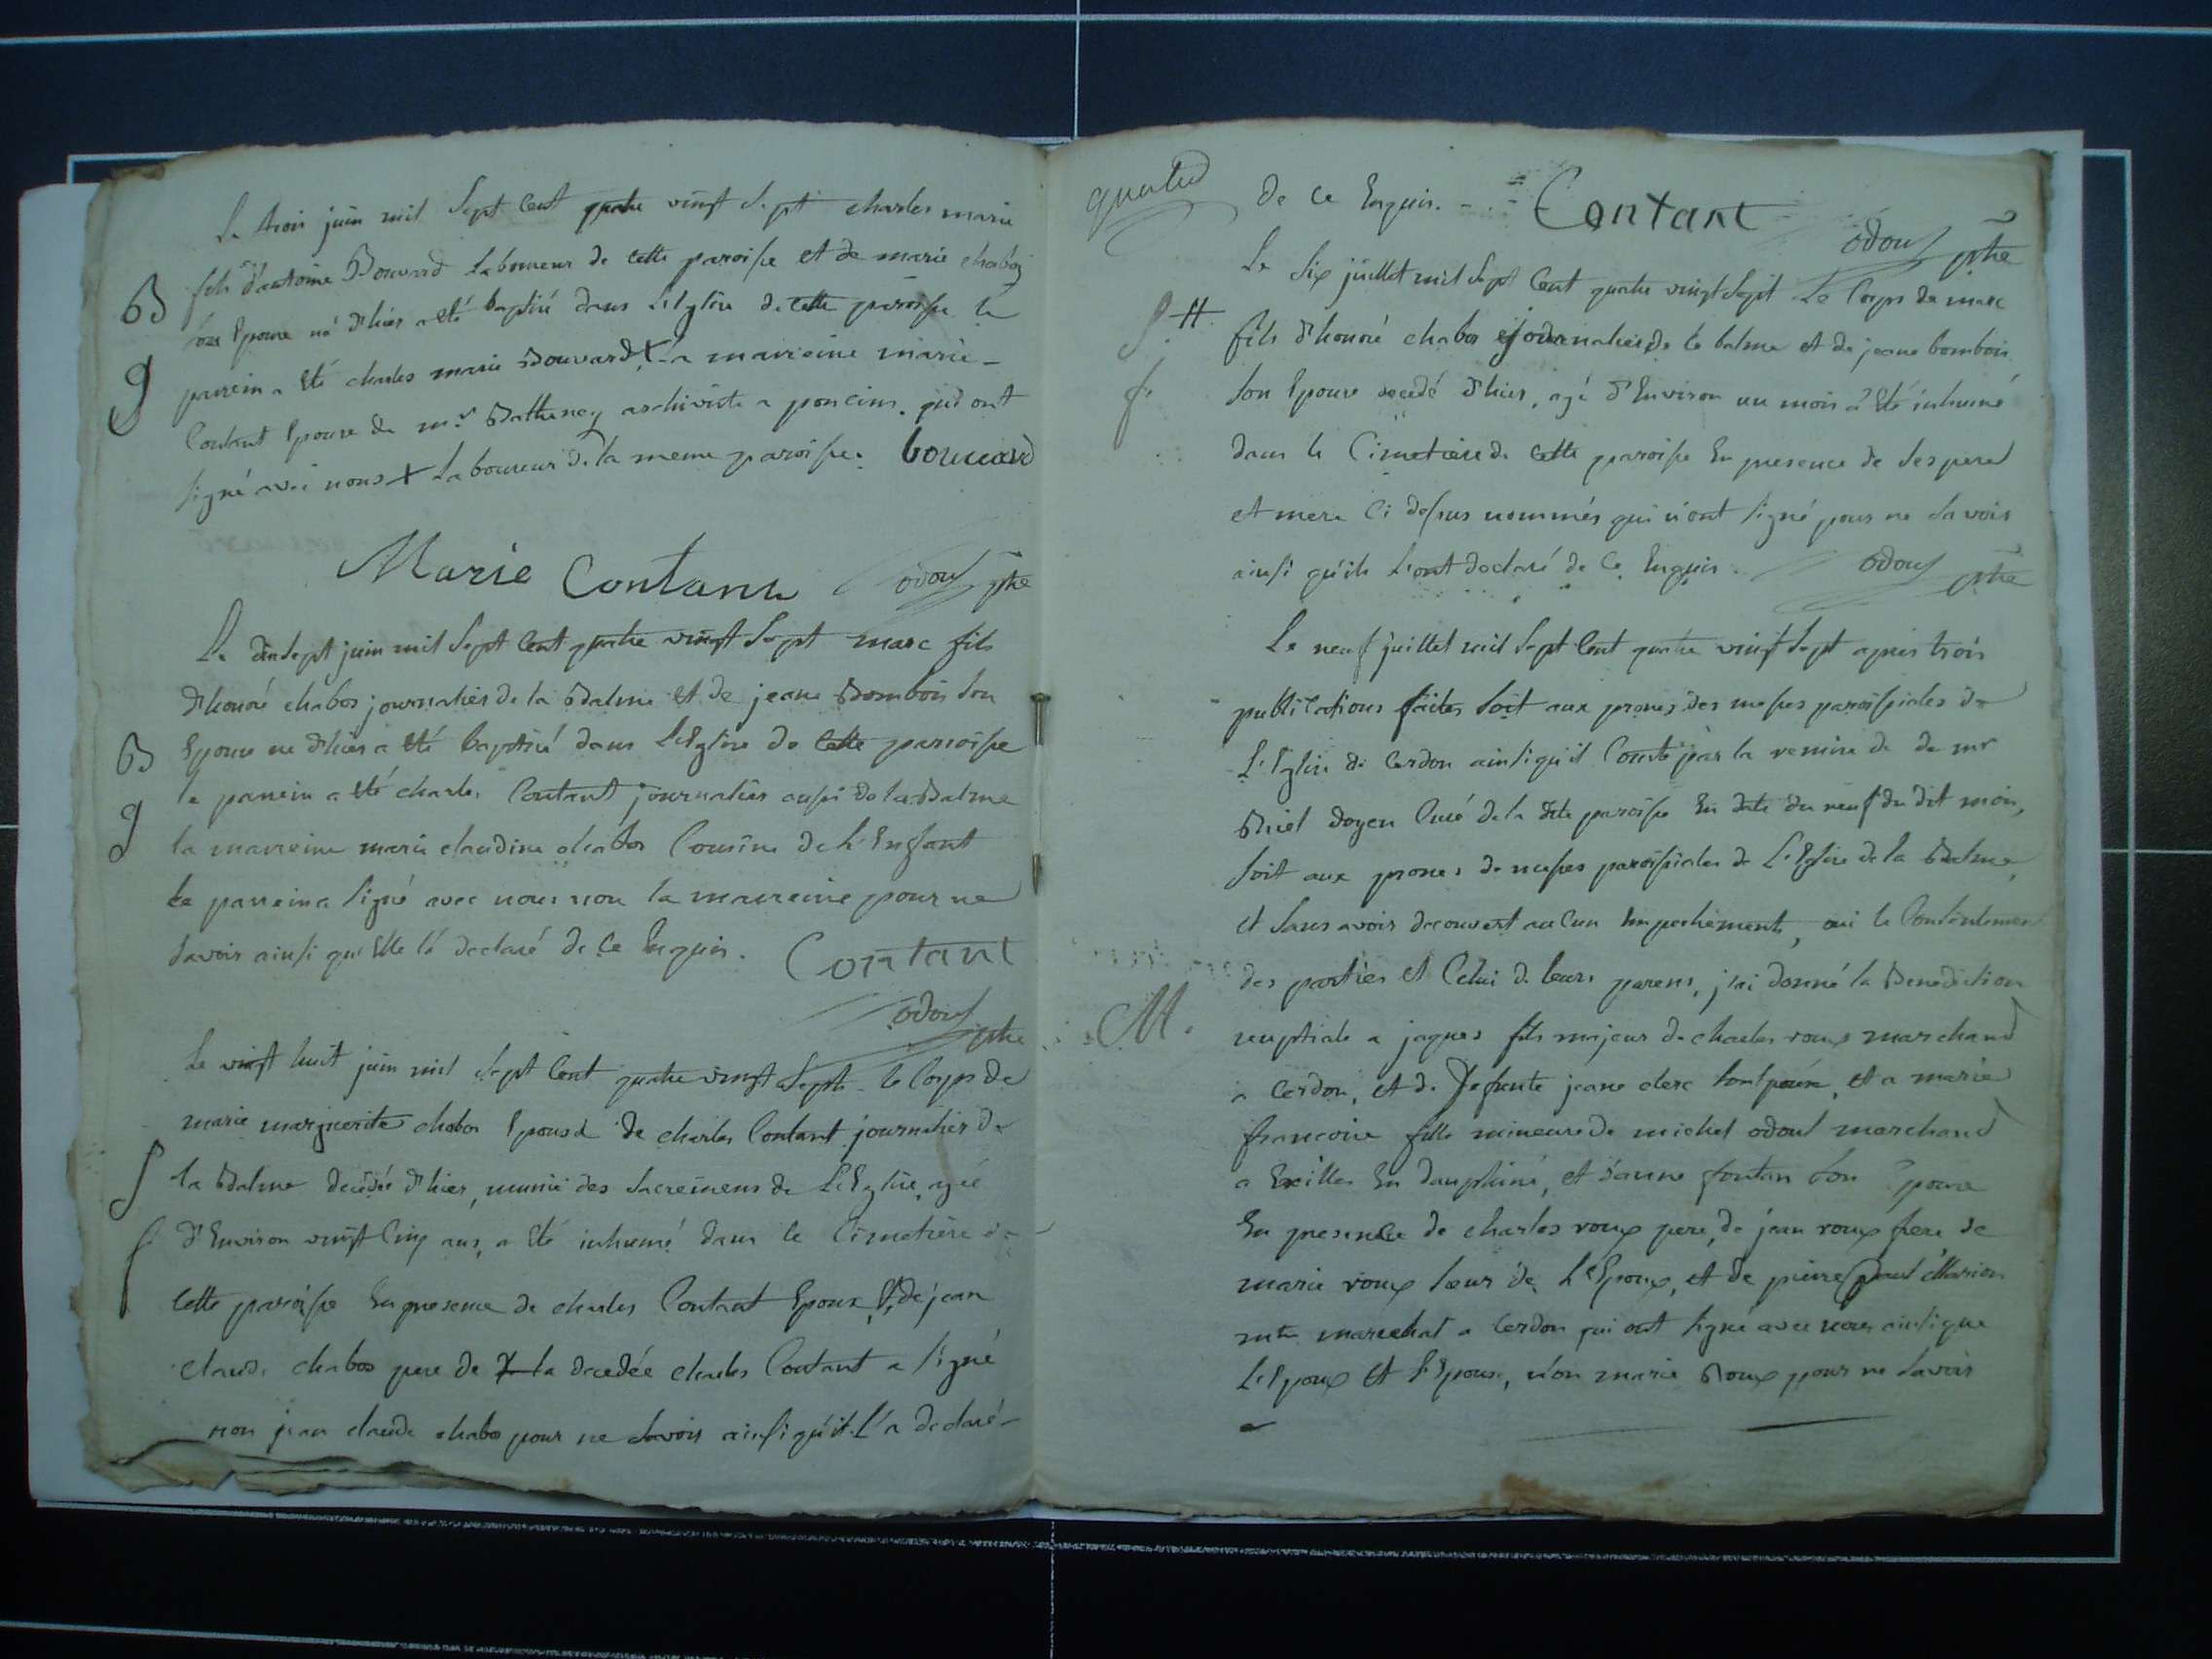 Le trois juin mil sept cent quatre vingt sept charles marie
fils d'antoine Bouvard laboureur de cette paroisse et de marie chabos
B
son Epouse né d'hier a eté baptisé dans L'Eglise de cette paroisse le
g
parrein a Eté charles marie Bouvard, + La marreine marie
Contant Epouse de mr. archiviste a poncins. qui ont
signé avec nous + laboureur de la meme paroisse. bouvard
Marie Contant odoul ptre
Le dix sept juin mil sept cent quatre vingt sept marc fils
d'honoré chabos journalier de la Balme et de jeane Bombois son
B
Epouse né d'hier a été baptisé dans L'Eglise de cette paroisse
g
le parrein a eté charles Contant journalier aussi de la Balme
la marreine marie claudine chabos Cousine de L'Enfant
Le parrein a signé avec nous non la marreine pour ne
savoir ainsi qu'Elle l'a declaré de ce Enquis. Contant
odoul ptre
Le vingt huit juin mil sept cent quatre vingt sept le Corps de
marie marguerite chabos Epouse de charles Contant journalier de
S
la Balme decedée d'hier, munie des sacremens de L'Eglise, agée
f
d'Environ vingt Cinq ans, a Eté inhumé dans le Cimetiere de
cette paroisse En presence de charles Contant Epoux, Et de jean
claude chabos pere de la decedée charles Contant a signé
non jean claude chabos pour ne savoir ainsi qu'il L'a declaré
de ce Enquis. - Contant
odoul ptre
Le six juillet mil sept cent quatre vingt sept Le Corps de marc
S. #
fils d'honoré chabos journalier de la balme et de jeane bombois
f
son Epouse decedé d'hier, agé d'Environ un mois a Eté inhumé
dans le Cimetiere de cette paroisse En presence de ses pere
et mere Ci dessus nommés qui n'ont signé pour ne savoir
ainsi qu'ils L'ont declaré de Ce Enquis. odoul ptre
Le neuf juillet mil sept cent quatre vingt sept apres trois
publications faites soit aux prones des messes paroissiales de
L'Eglise de Cerdon ainsi qu'il Conste par la remise de de mr
doyen Curé de la dite paroisse En date du neuf du dit mois,
soit aux prones de messes paroissiales de L'Eglise de la Balme,
et sans avoir decouvert aucun Empechement, oui le Consentement
des parties et Celui de leurs parens, j'ai donné la Benediction
M.
nuptiale a jaques fils majeur de charles roux marchand
a Cerdon, et de Defunte jeane clerc et a marie
francoise fille mineure de michel odoul marchand
a Exilles En dauphiné, et d'anne fontan son Epouse
En presence de charles roux pere, de jean roux frere de
marie roux sœur de L'Epoux, et de pierre paul Marion
mtre marechal a Cerdon qui ont signé avec nous ainsi que
L'Epoux et L'Epouse, non marie Roux pour ne savoir